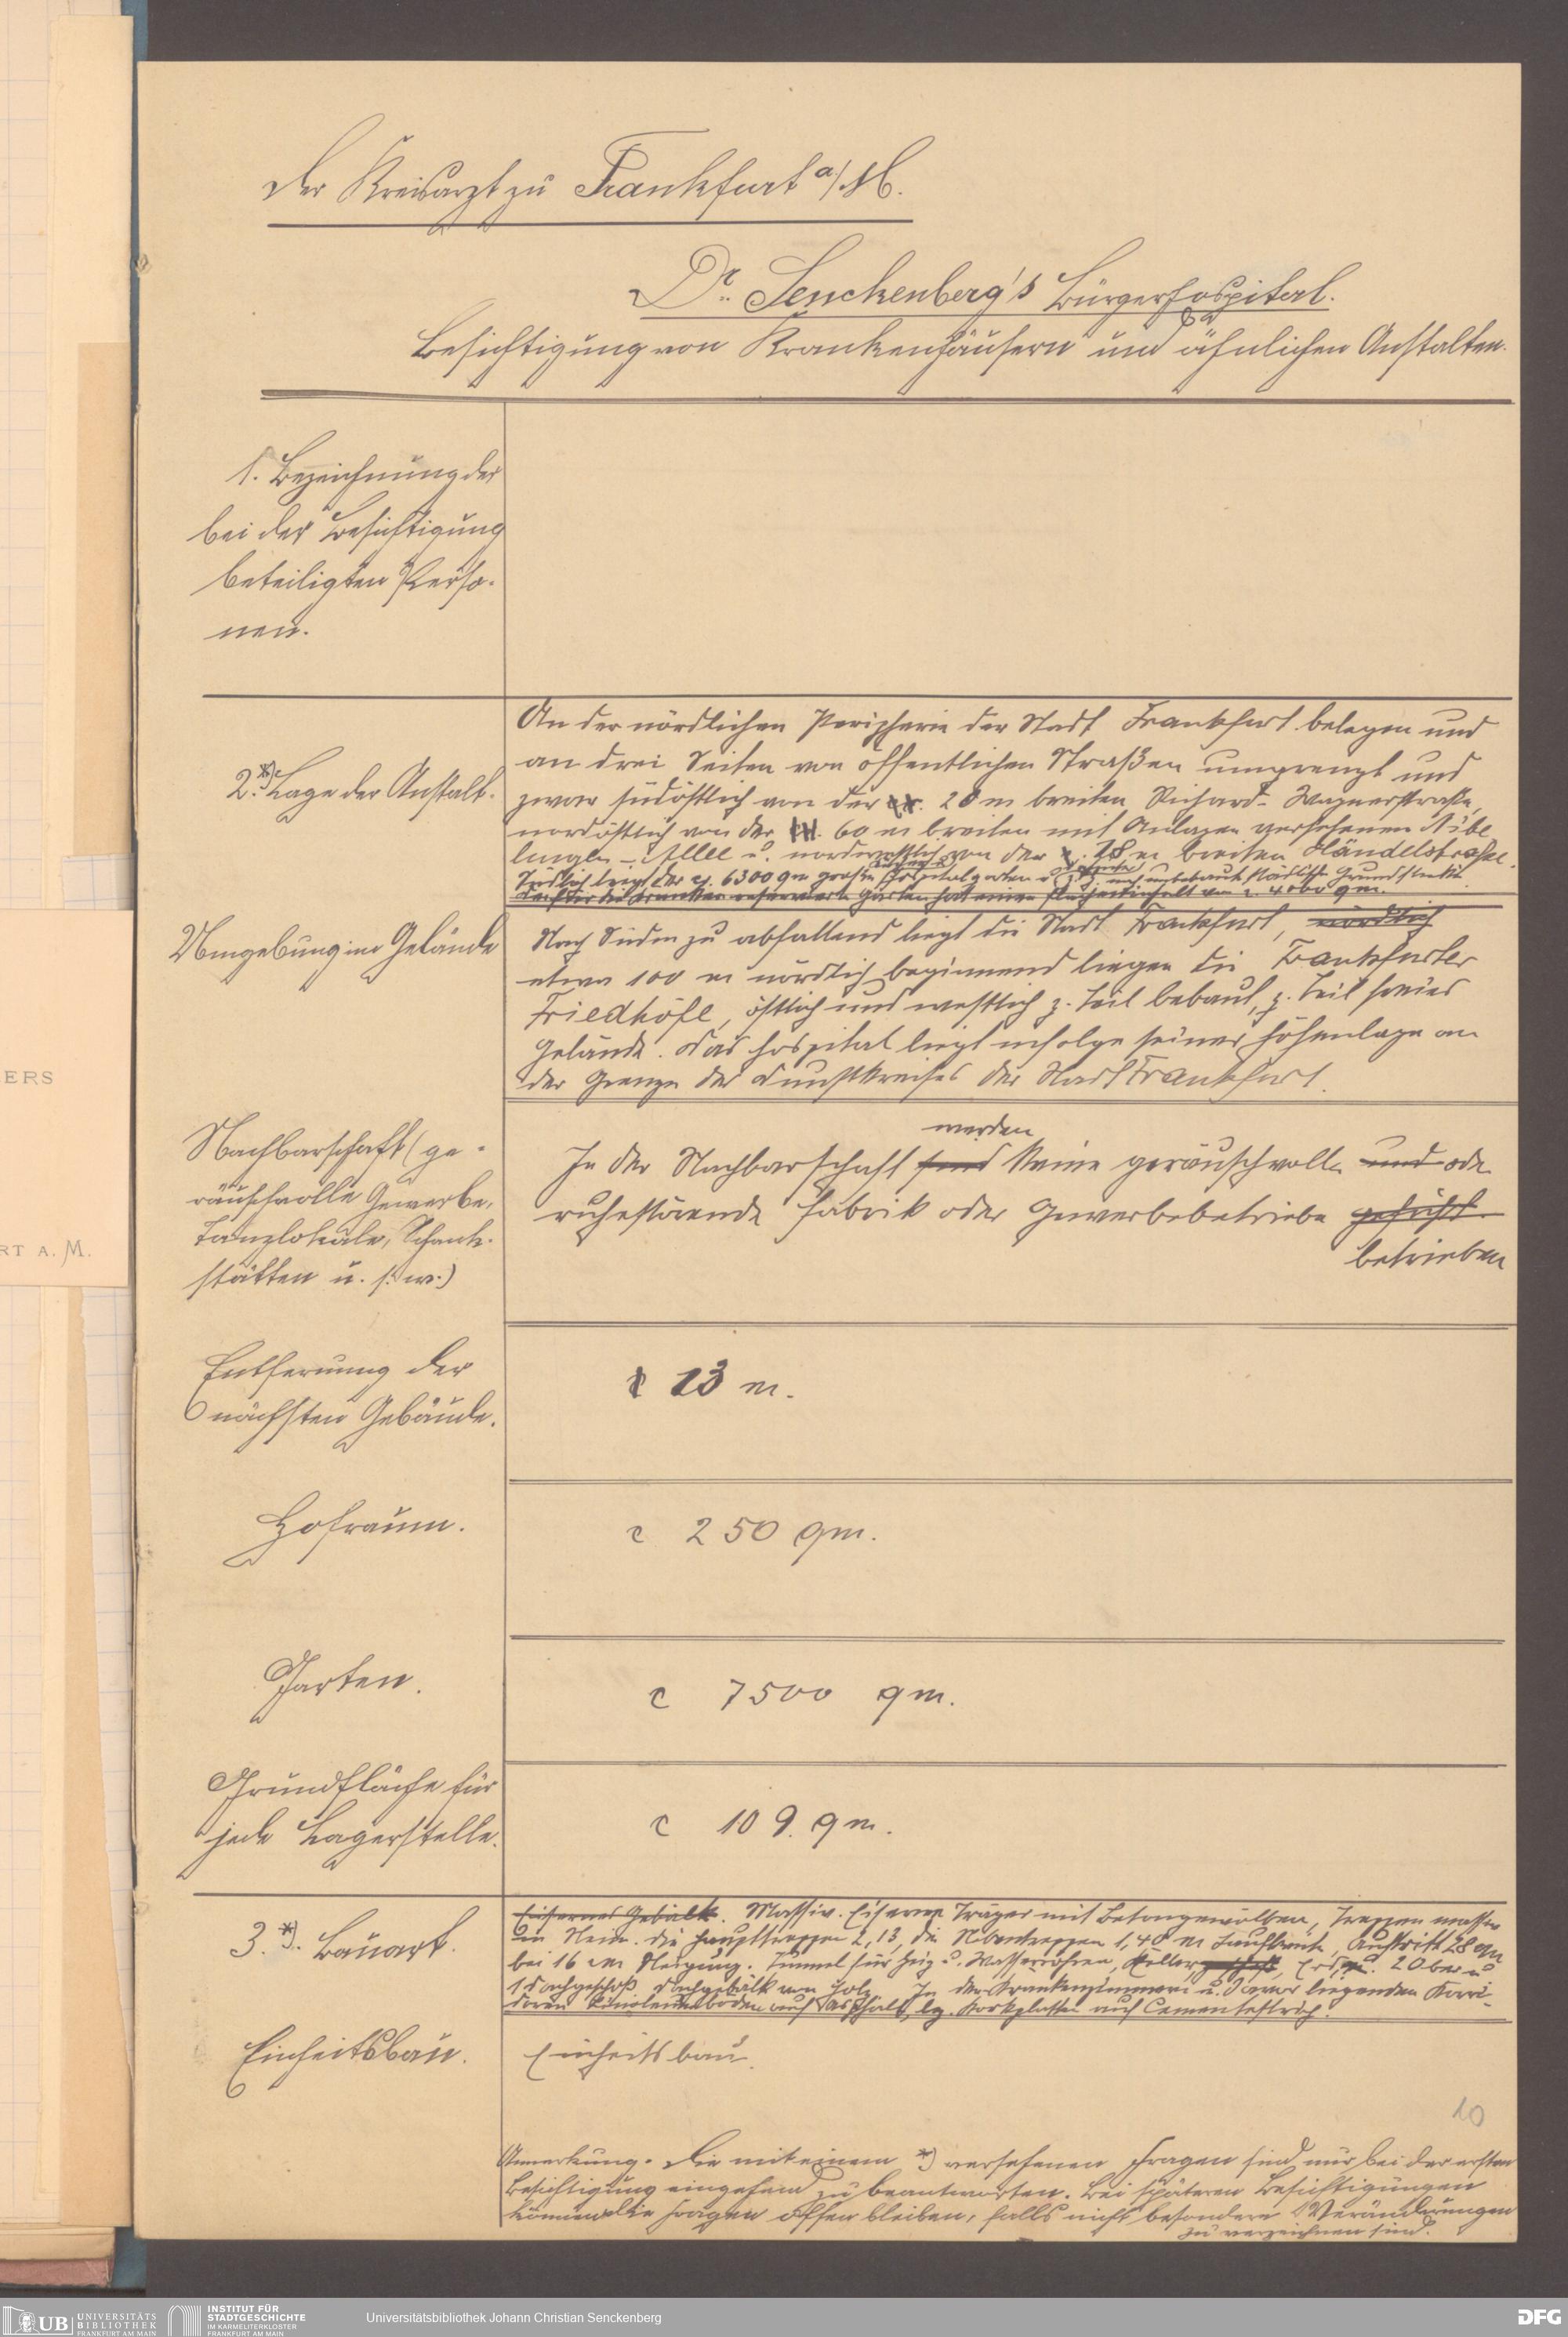 Der Kreisarzt zu Frankfurt a/M.
Dr. Senckenberg's Bürgerhospital.
Besichtigung von Krankenhäusern und ähnlichen Anstalten.
1. Bezeichnung der
bei der Besichtigung
beteiligten Perso-
nen.
2.*) Lage der Anstalt.
An der nördlichen Peripherie der Stadt Frankfurt belegen und
an drei Seiten von öffentlichen Straßen umgrenzt und
zwar südöstlich von der 20 m breiten Richard-Wagnerstraße,
nordöstlich von der 60 m breiten mit Anlagen versehenen Nibe
lungen-Allee u. nordwestlich von der 18 m breiten Händelstraße.
Südlich liegt der c. 6300 qm große Hospitalgarten u. z. Z. noch unbebaute städtische Grundstücke.
Der für die Kranken reservierte Garten hat einen Flächeninhalt von c. 4000 qm.
Umgebung im Gelände
Nach Süden zu abfallend liegt die Stadt Frankfurt, nördlich
etwa 100 m nördlich beginnend liegen die Frankfurter
Friedhöfe, östlich und westlich z. Teil bebaut, z. Teil freies
Gelände. Das Hospital liegt infolge seiner Höhenlage an
der Grenze des Dunstkreises der Stadt Frankfurt.
Nachbarschaft (ge-
räuschvolle Gewerbe,
Tanzlokale, Schank-
stätten u. s. w.)
werden
In der Nachbarschaft sind keine geräuschvolle und oder
ruhestörende Fabrik oder Gewerbebetriebe geführt.
betrieben
Entfernung der
nächsten Gebäude.
c 23 m.
Hofraum.
c 250 qm.
Garten.
c 7500 qm.
Grundfläche für
jede Lagerstelle.
c 109. qm.
3.*) Bauart.
Eisernes Gebälk. Massiv. Eiserne Träger mit Betongewölben, Treppen massiv
in Stein. Die Haupttreppen 2,13, die Nebentreppen 1,40 m Laufbreite, Auftritt 28 cm
bei 16 cm Steigung. Tunnel für Heiz- u. Wasserrohren, Keller, Erd- u. 2 Ober- u
1 Dachgeschoß, Dachgebälk von Holz. In den Krankenzimmern u. davor liegenden Korri-
doren Linoleumboden auf Asphalt, bz. Korkplatten auf Cementestrich.
Einheitsbau.
Einheitsbau.
10
Anmerkung. Die mit einem *) versehenen Fragen sind nur bei der ersten
Besichtigung eingehend zu beantworten. Bei späteren Besichtigungen
können die Fragen offen bleiben, falls nicht besondere Veränderungen
zu verzeichnen sind.
ERS
RT A. M.
UB UNIVERSITÄTS
BIBLIOTHEK
FRANKFURT AM MAIN
INSTITUT FÜR
STADTGESCHICHTE
IM KARMELITERKLOSTER
FRANKFURT AM MAIN
Universitätsbibliothek Johann Christian Senckenberg
DFG